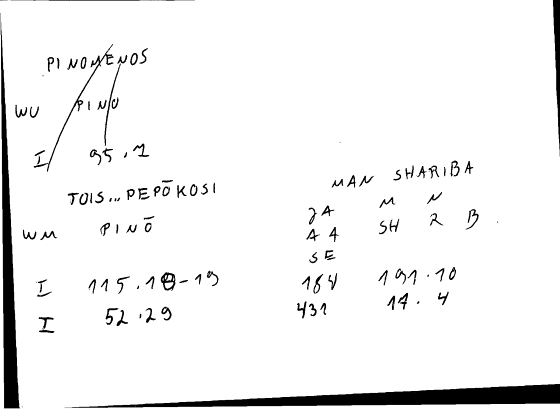 PINOMENOS
WU PINO
I 95.1
TOIS...PEPŌKOSI
WM PINŌ
I 115.18-19
I 52.29
MAN SHARIBA
JA M N
AA SH R B
SE
184 191.10
431 14.4